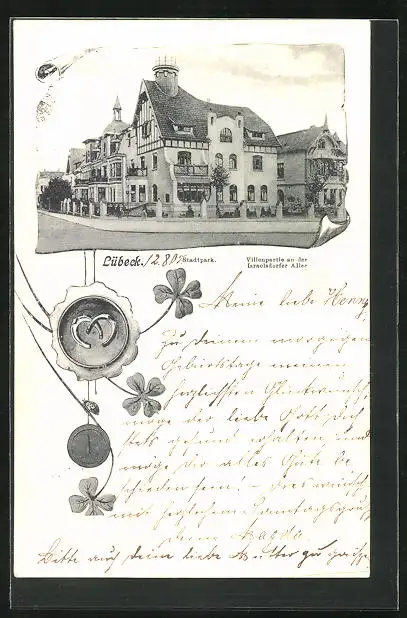 Lübeck. 12.8.05 Stadtpark. Villenpartie an der
Israelsdorfer Allee
Meine liebe Henny
Zu Deinem morgigen
Geburtstage meinen
herzlichsten Glückwunsch,
möge der liebe Gott Dich
stets gesund erhalten und
möge Dir alles Gute be
schieden sein! – Dies wünscht
mit herzlichem Sonntagsgruß
Deine Magda.
Bitte auch Deine liebe Mutter zu grüßen